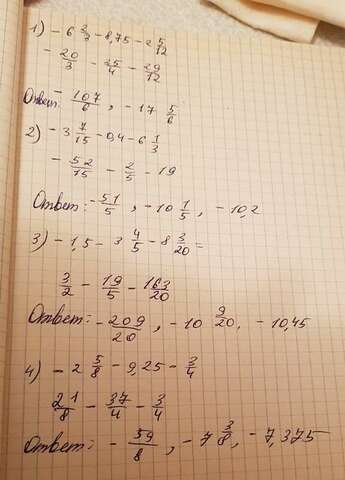 1) - 6 2/3 - 8,75 - 2 5/12
- 20/3 - 35/4 - 29/12
Ответ: - 107/6, - 17 5/6
2) - 3 7/15 - 0,4 - 6 1/3
- 52/15 - 2/5 - 19
Ответ: - 51/5, - 10 1/5, - 10,2
3) - 1,5 - 3 4/5 - 8 3/20 =
3/2 - 19/5 - 163/20
Ответ: - 209/20, - 10 9/20, - 10,45
4) - 2 5/8 - 9,25 - 3/4
21/8 - 37/4 - 3/4
Ответ: - 59/8, - 7 3/8, - 7,375